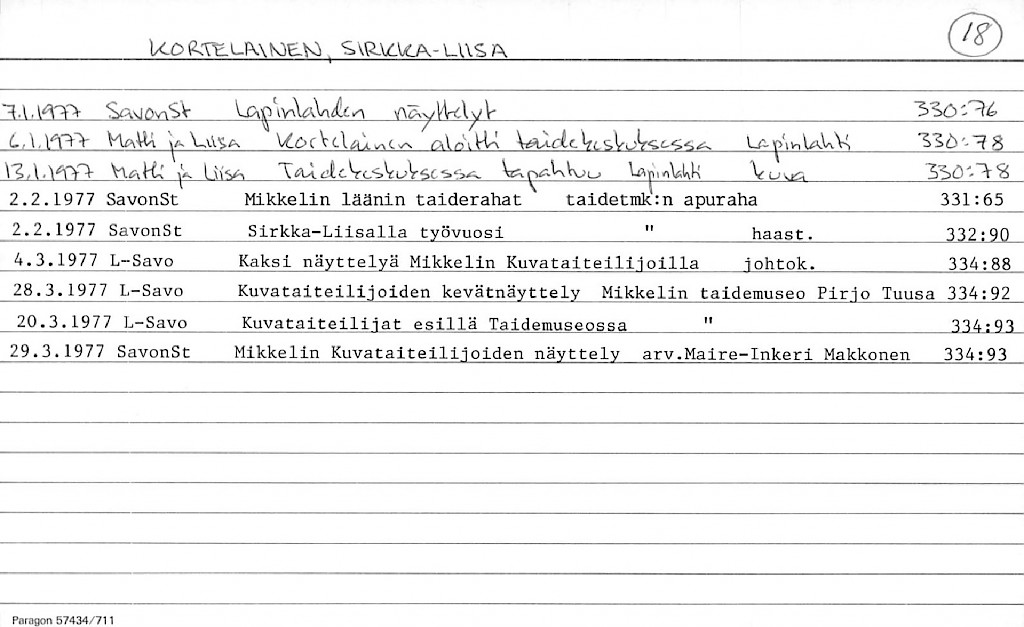 18
KORTELAINEN, SIRKKA-LIISA
7.1.1977 SavonSt Lapinlahden näyttelyt 330:76
6.1.1977 Matti ja Liisa Kortelainen aloitti taidekeskuksessa Lapinlahti 330:78
13.1.1977 Matti ja Liisa Taidekeskuksessa tapahtuu Lapinlahti kuva 330:78
2.2.1977 SavonSt Mikkelin läänin taiderahat taidetmk:n apuraha 331:65
2.2.1977 SavonSt Sirkka-Liisalla työvuosi " haast. 332:90
4.3.1977 L-Savo Kaksi näyttelyä Mikkelin Kuvataiteilijoilla johtok. 334:88
28.3.1977 L-Savo Kuvataiteilijoiden kevätnäyttely Mikkelin taidemuseo Pirjo Tuusa 334:92
20.3.1977 L-Savo Kuvataiteilijat esillä Taidemuseossa " 334:93
29.3.1977 SavonSt Mikkelin Kuvataiteilijoiden näyttely arv.Maire-Inkeri Makkonen 334:93
Paragon 57434/711